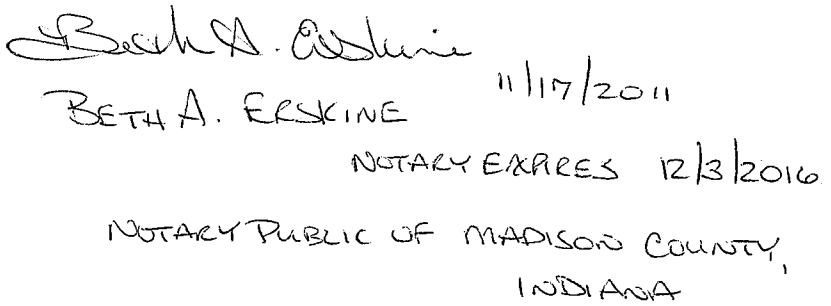 Beth A. Erskine
11/17/2011
BETH A. ERSKINE
NOTARY EXPIRES 12/3/2016
NOTARY PUBLIC OF MADISON COUNTY,
INDIANA